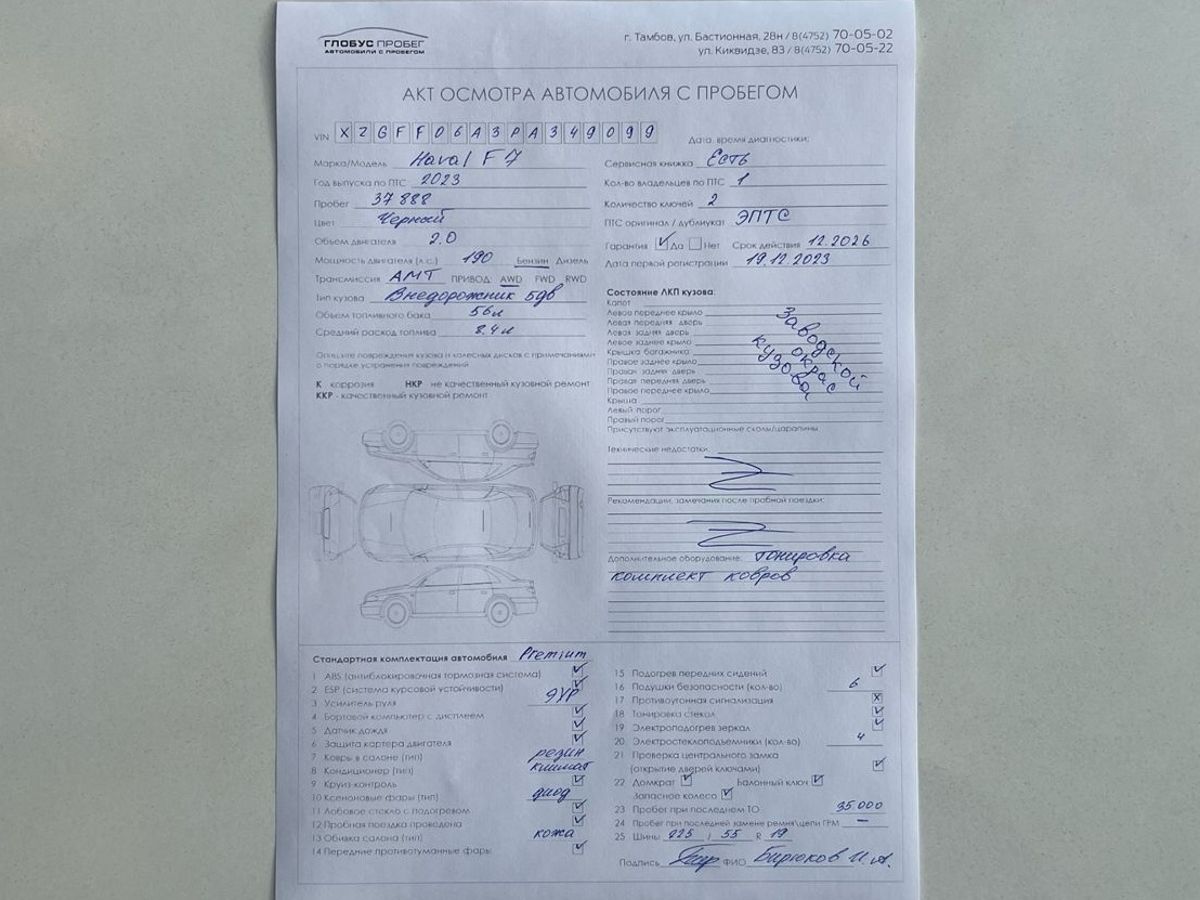 ГЛОБУС ПРОБЕГ
АВТОМОБИЛИ С ПРОБЕГОМ
г. Тамбов, ул. Бастионная, 28н / 8(4752) 70-05-02
ул. Киквидзе, 83 / 8(4752) 70-05-22
АКТ ОСМОТРА АВТОМОБИЛЯ С ПРОБЕГОМ
VIN XZGFF06A3PA349099
Дата, время диагностики:
Марка/Модель Haval F7
Год выпуска по ПТС 2023
Пробег 37 888
Цвет Черный
Объем двигателя 2.0
Мощность двигателя (л.с.) 190 Бензин Дизель
Трансмиссия АМТ ПРИВОД: AWD FWD RWD
Тип кузова Внедорожник 5дв
Объем топливного бака 56л
Средний расход топлива 8.4л
Опишите повреждения кузова и колесных дисков с примечаниями
о порядке устранения повреждений
К коррозия НКР не качественный кузовной ремонт
ККР - качественный кузовной ремонт
Сервисная книжка Есть
Кол-во владельцев по ПТС 1
Количество ключей 2
ПТС оригинал / дубликат ЭПТС
Гарантия Да Нет Срок действия 12.2026
Дата первой регистрации 19.12.2023
Состояние ЛКП кузова:
Капот
Левое переднее крыло
Левая передняя дверь
Левая задняя дверь
Левое заднее крыло
Крышка багажника
Правое заднее крыло
Правая задняя дверь
Правая передняя дверь
Правое переднее крыло
Крыша
Левый порог
Правый порог
Заводской
окрас
кузова
Присутствуют эксплуатационные сколы/царапины
Технические недостатки:
Рекомендации, замечания после пробной поездки:
Дополнительное оборудование: тонировка
комплект ковров
Стандартная комплектация автомобиля Premium
1 ABS (антиблокировочная тормозная система)
2 ESP (система курсовой устойчивости)
3 Усилитель руля ЭУР
4 Бортовой компьютер с дисплеем
5 Датчик дождя
6 Защита картера двигателя
7 Ковры в салоне (тип) резин
8 Кондиционер (тип) климат
9 Круиз-контроль
10 Ксеноновые фары (тип) диод
11 Лобовое стекло с подогревом
12 Пробная поездка проведена
13 Обивка салона (тип) кожа
14 Передние противотуманные фары
15 Подогрев передних сидений
16 Подушки безопасности (кол-во) 6
17 Противоугонная сигнализация
18 Тонировка стекол
19 Электроподогрев зеркал
20 Электростеклоподъемники (кол-во) 4
21 Проверка центрального замка
(открытие дверей ключами)
22 Домкрат Балонный ключ
Запасное колесо
23 Пробег при последнем ТО 35 000
24 Пробег при последней замене ремня\цепи ГРМ —
25 Шины 225 / 55 R 19
Подпись ФИО Бирюков И.А.